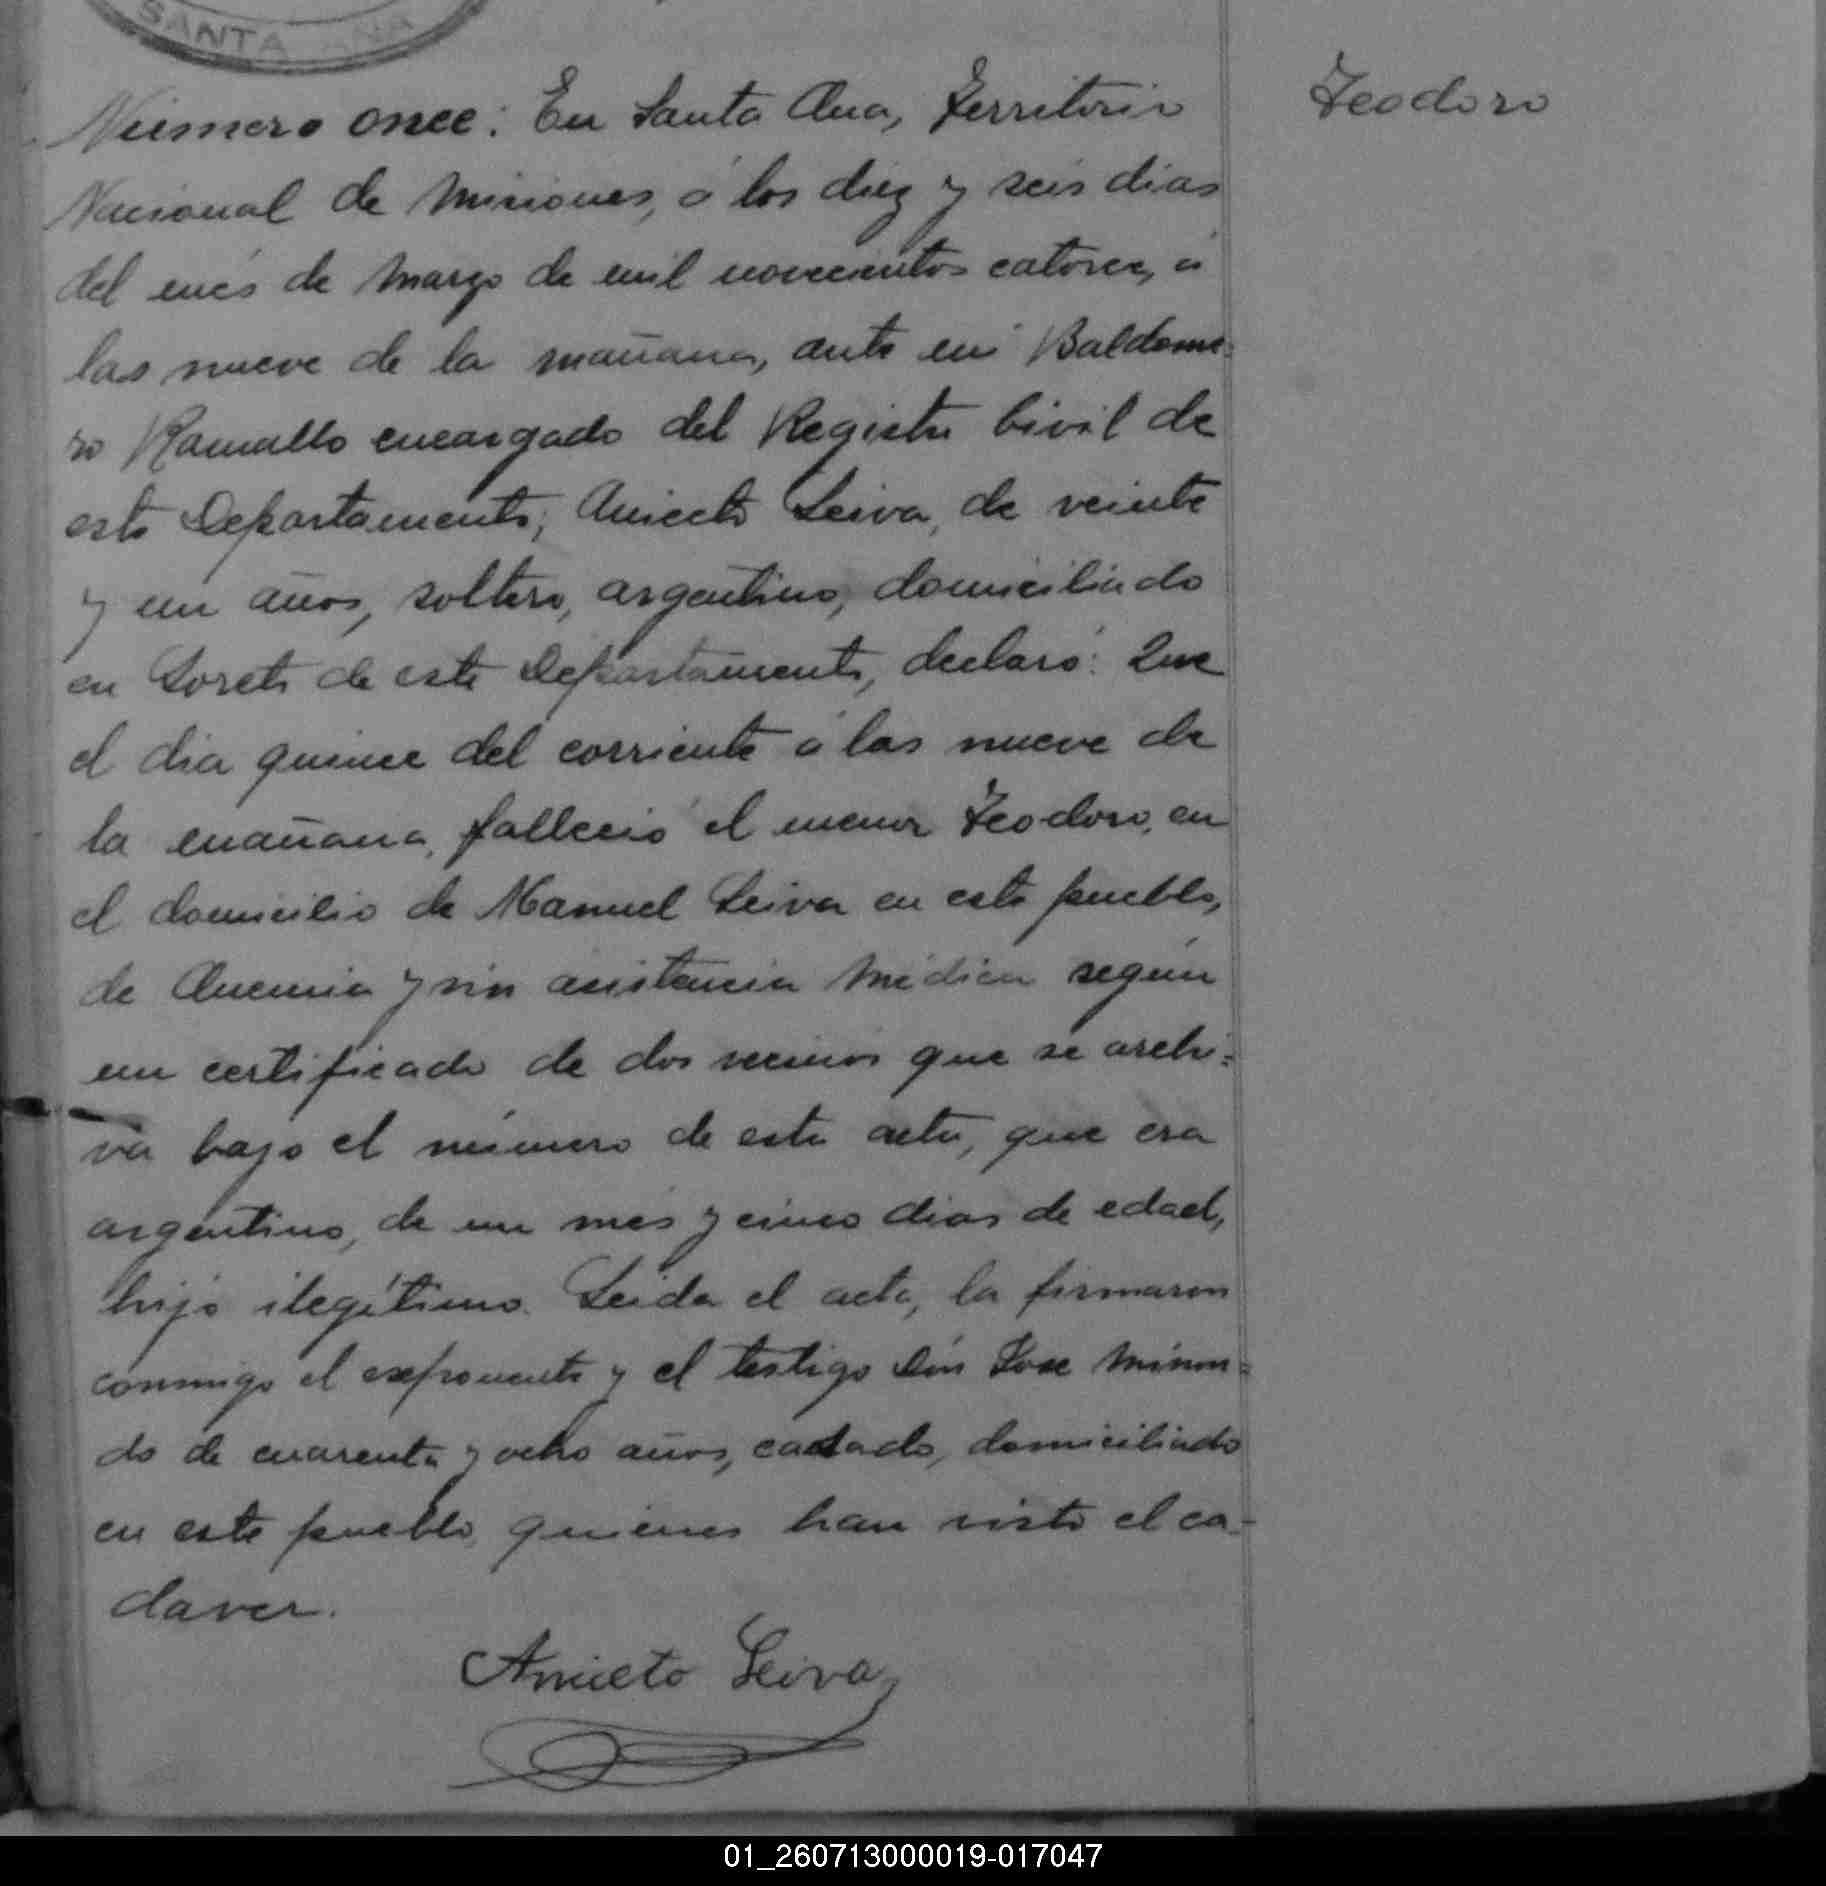 SANTA ANA
Número once: En Santa Ana, Territorio
Teodoro
Nacional de Misiones, á los diez y seis dias
del més de Marzo de mil novecientos catorce, á
las nueve de la mañana, ante mí Baldome-
ro Ramallo encargado del Registro Civil de
este Departamento, Aniceto Leiva, de veinte
y un años, soltero, argentino, domiciliado
en Loreto de este Departamento, declaró: Que
el dia quince del corriente á las nueve de
la mañana, falleció el menor Teodoro, en
el domicilio de Manuel Leiva en este pueblo,
de Anemia y sin asistencia Médica según
un certificado de dos vecinos que se archi-
va bajo el número de esta acta, que era
argentino, de un més y cinco dias de edad,
hijo ilegítimo. Leida el acta, la firmaron
conmigo el exponente y el testigo Don José Minon-
do de cuarenta y ocho años, casado, domiciliado
en este pueblo, quienes han visto el ca-
daver.
Anicto Leiva
01_260713000019-017047